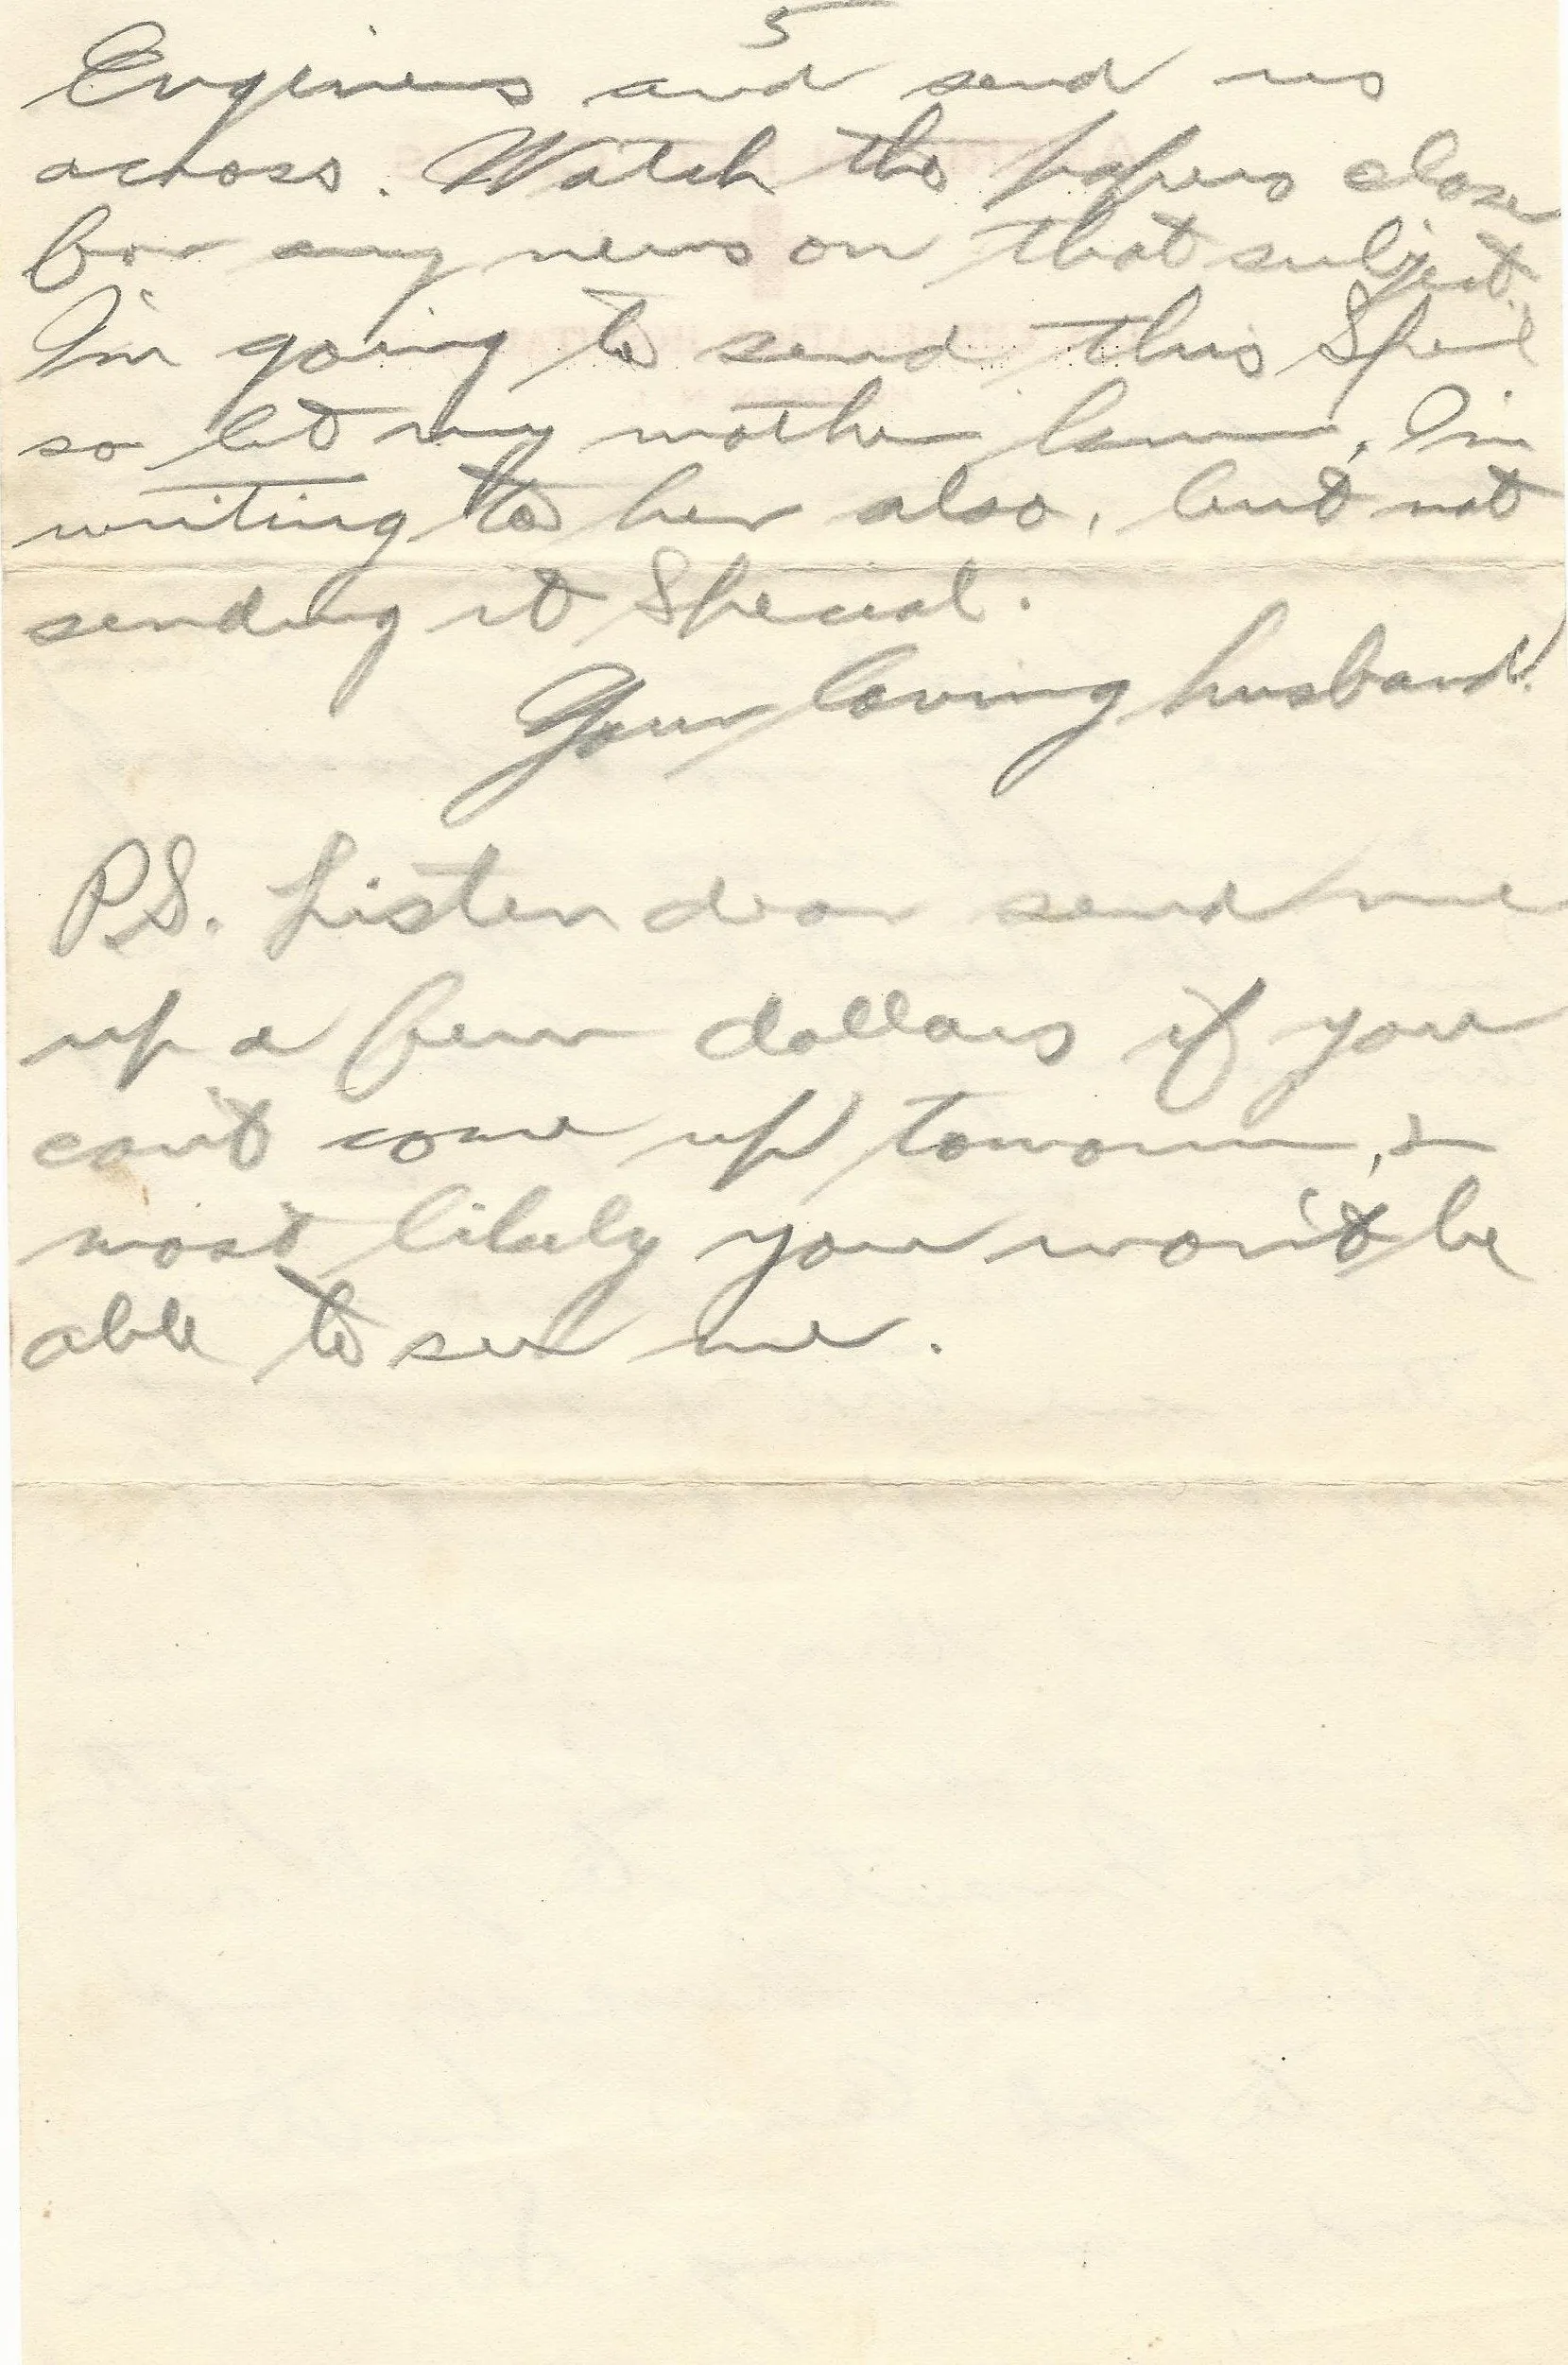 5
Engineers and send us
across. Watch the papers close
for any news on that subject.
I'm going to send this Special
so let my mother know, I'm
writing to her also, but not
sending it Special.
Your loving husband.
P.S. Listen dear send me
up a few dollars if you
can't come up tomorrow, &
most likely you won't be
able to see me.